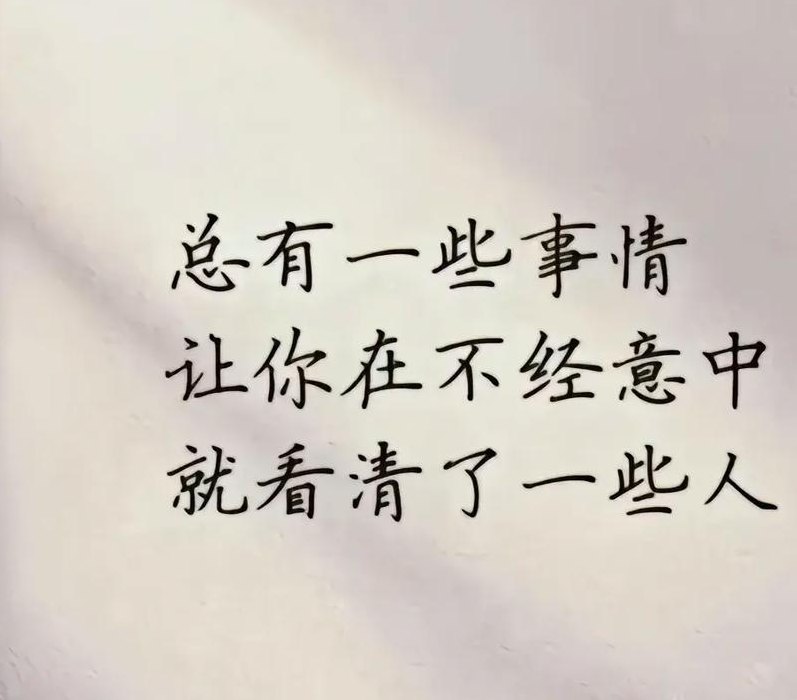 总有一些事情
让你在不经意中
就看清了一些人